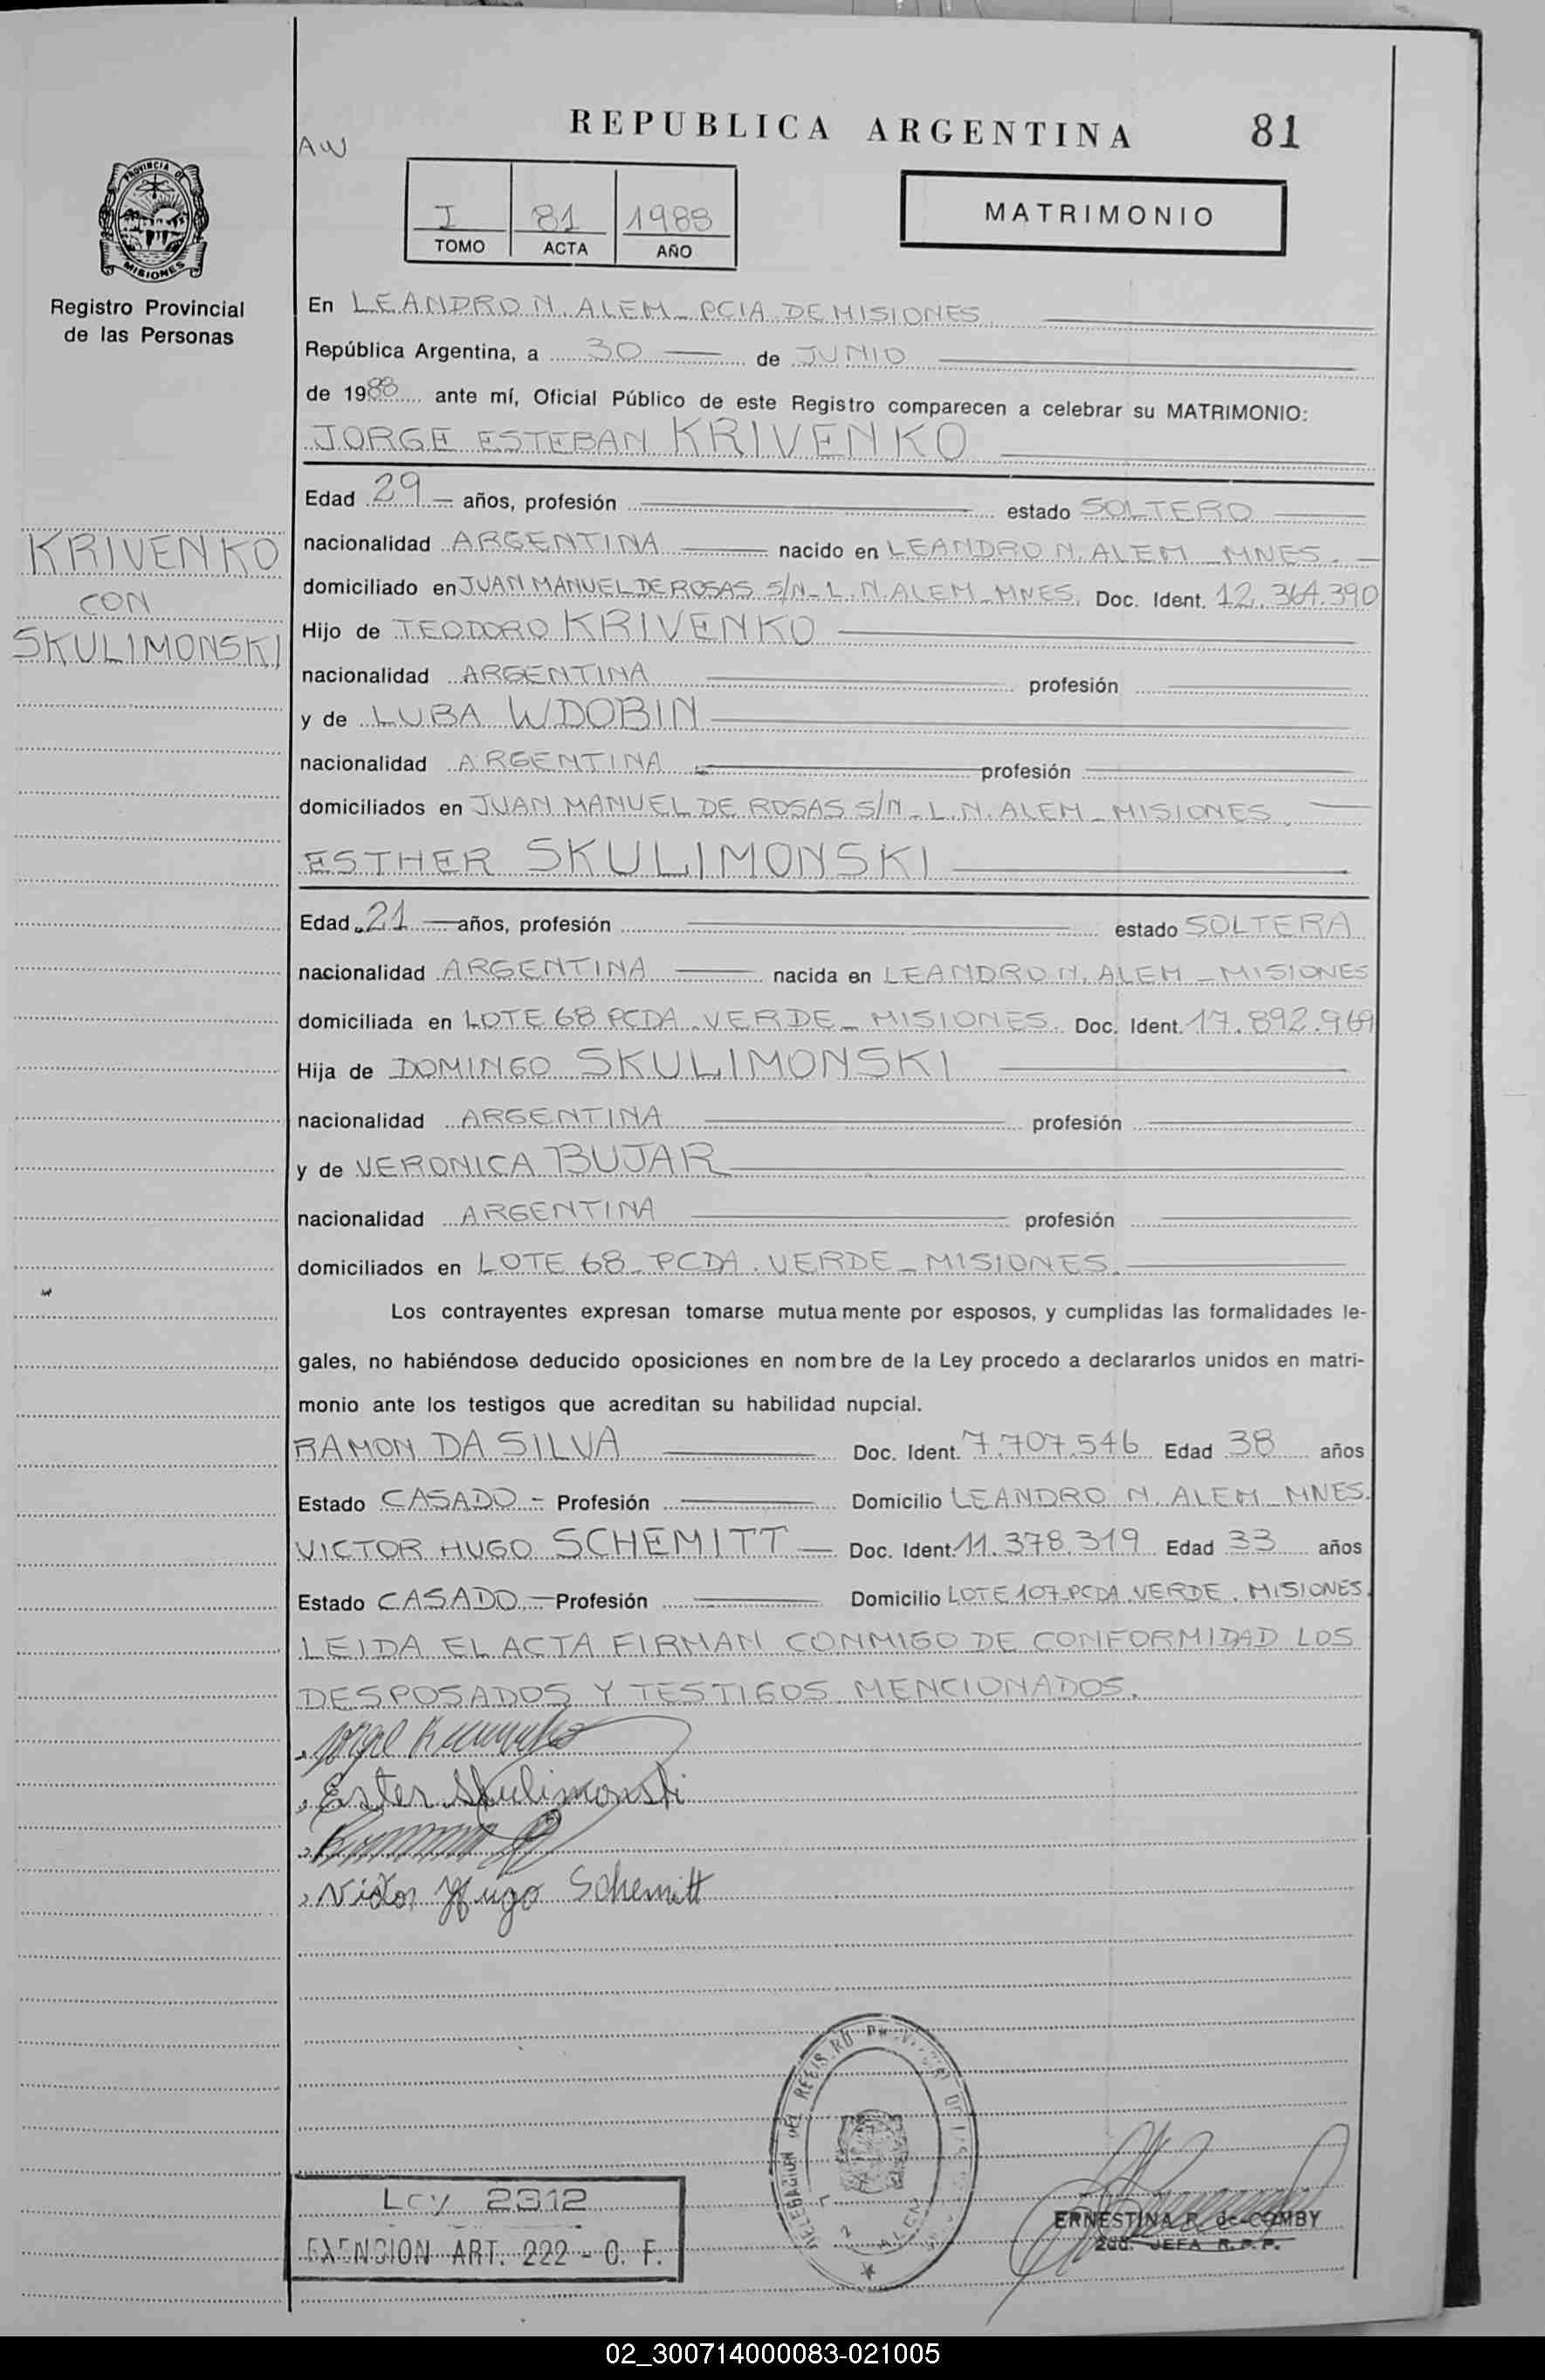 REPUBLICA ARGENTINA
81
AW
I 81 1988
TOMO ACTA AÑO
MATRIMONIO
PROVINCIA DE
MISIONES
Registro Provincial
de las Personas
En LEANDRO N. ALEM - PCIA DE MISIONES
República Argentina, a 30 de JUNIO
de 1988 ante mí, Oficial Público de este Registro comparecen a celebrar su MATRIMONIO:
JORGE ESTEBAN KRIVENKO
KRIVENKO
CON
SKULIMONSKI
Edad 29 años, profesión estado SOLTERO
nacionalidad ARGENTINA nacido en LEANDRO N. ALEM - MNES.
domiciliado en JUAN MANUEL DE ROSAS S/N - L. N. ALEM - MNES. Doc. Ident. 12.364.390
Hijo de TEODORO KRIVENKO
nacionalidad ARGENTINA profesión
y de LUBA WDOBIN
nacionalidad ARGENTINA profesión
domiciliados en JUAN MANUEL DE ROSAS S/N - L. N. ALEM - MISIONES.
ESTHER SKULIMONSKI
Edad 21 años, profesión estado SOLTERA
nacionalidad ARGENTINA nacida en LEANDRO N. ALEM - MISIONES
domiciliada en LOTE 68 PCDA. VERDE - MISIONES. Doc. Ident. 17.892.969
Hija de DOMINGO SKULIMONSKI
nacionalidad ARGENTINA profesión
y de VERONICA BUJAR
nacionalidad ARGENTINA profesión
domiciliados en LOTE 68 - PCDA. VERDE - MISIONES.
Los contrayentes expresan tomarse mutuamente por esposos, y cumplidas las formalidades le-
gales, no habiéndose deducido oposiciones en nombre de la Ley procedo a declararlos unidos en matri-
monio ante los testigos que acreditan su habilidad nupcial.
RAMON DA SILVA Doc. Ident. 7.707.546 Edad 38 años
Estado CASADO - Profesión Domicilio LEANDRO N. ALEM - MNES.
VICTOR HUGO SCHEMITT Doc. Ident. 11.378.319 Edad 33 años
Estado CASADO - Profesión Domicilio LOTE 107 - PCDA. VERDE. MISIONES.
LEIDA EL ACTA FIRMAN CONMIGO DE CONFORMIDAD LOS
DESPOSADOS Y TESTIGOS MENCIONADOS.
Jorge Krivenko
Ester Skulimonski
Victor Hugo Schemitt
Ley 2312
EXENCION ART. 222 - C. F.
DELEGACION DEL REGISTRO
ERNESTINA R. de COMBY
2da. JEFA R.P.P.
02_300714000083-021005